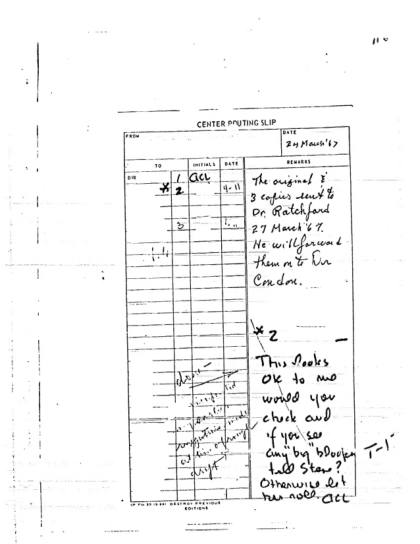 CENTER ROUTING SLIP
FROM
DATE
24 March '67
TO
INITIALS
DATE
REMARKS
DIR
1 acl
* 2 4-11
3
The original &
3 copies sent to
Dr. Ratchford
27 March '67.
He will forward
them on to Dr
Condon.
* 2
This looks
OK to me
would you
check and
if you see
any "big" bloopers
tell Steve?
Otherwise let
her roll. acl
T-1
done -
DESTROY PREVIOUS
EDITIONS